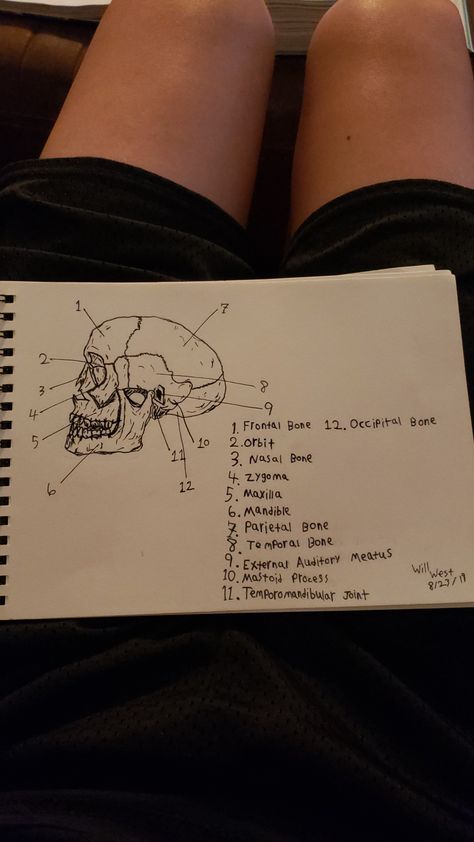 1
7
2
3
8
4
9
5
10
11
6
12
1. Frontal Bone 12. Occipital Bone
2. Orbit
3. Nasal Bone
4. Zygoma
5. Maxilla
6. Mandible
7. Parietal Bone
8. Temporal Bone
9. External Auditory Meatus
10. Mastoid Process
11. Temporomandibular Joint
Will West
8/27/19